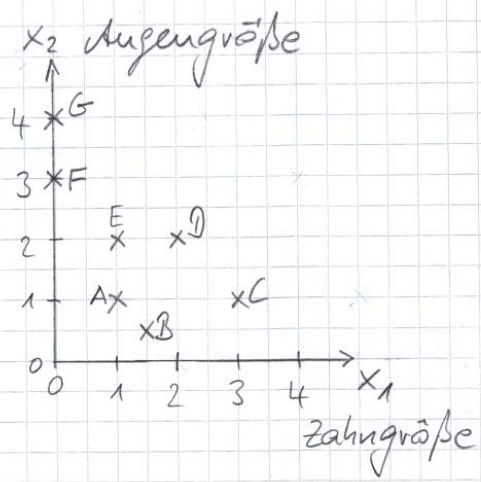 x₂ Augengröße
4 G
3 F
E
2 D
1 A C
B
0
0 1 2 3 4 x₁
Zahngröße